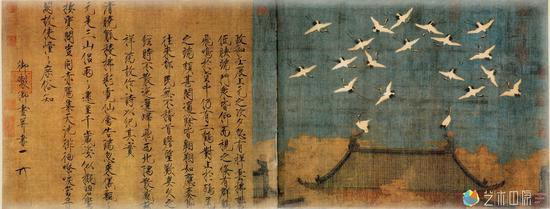 政和壬辰上元之次夕忽有祥雲拂鬱
低映端門眾皆仰而視之倏有群鶴
飛鳴於空中仍有二鶴對止於鴟尾
之端頗甚閒適餘皆翱翔如應奏節
往來都民無不稽首瞻望歎異久之
經時不散迤邐歸飛西北隅散感茲
祥瑞故作詩以紀其實
清曉觚稜拂彩霓仙禽告瑞忽來儀飄飄
元是三山侶兩兩還呈千歲姿似擬碧鸞
棲寶閣豈同赤鴈集天池徘徊嘹唳當丹
闕故使憧憧庶俗知
御製御畫并書
艺术中国